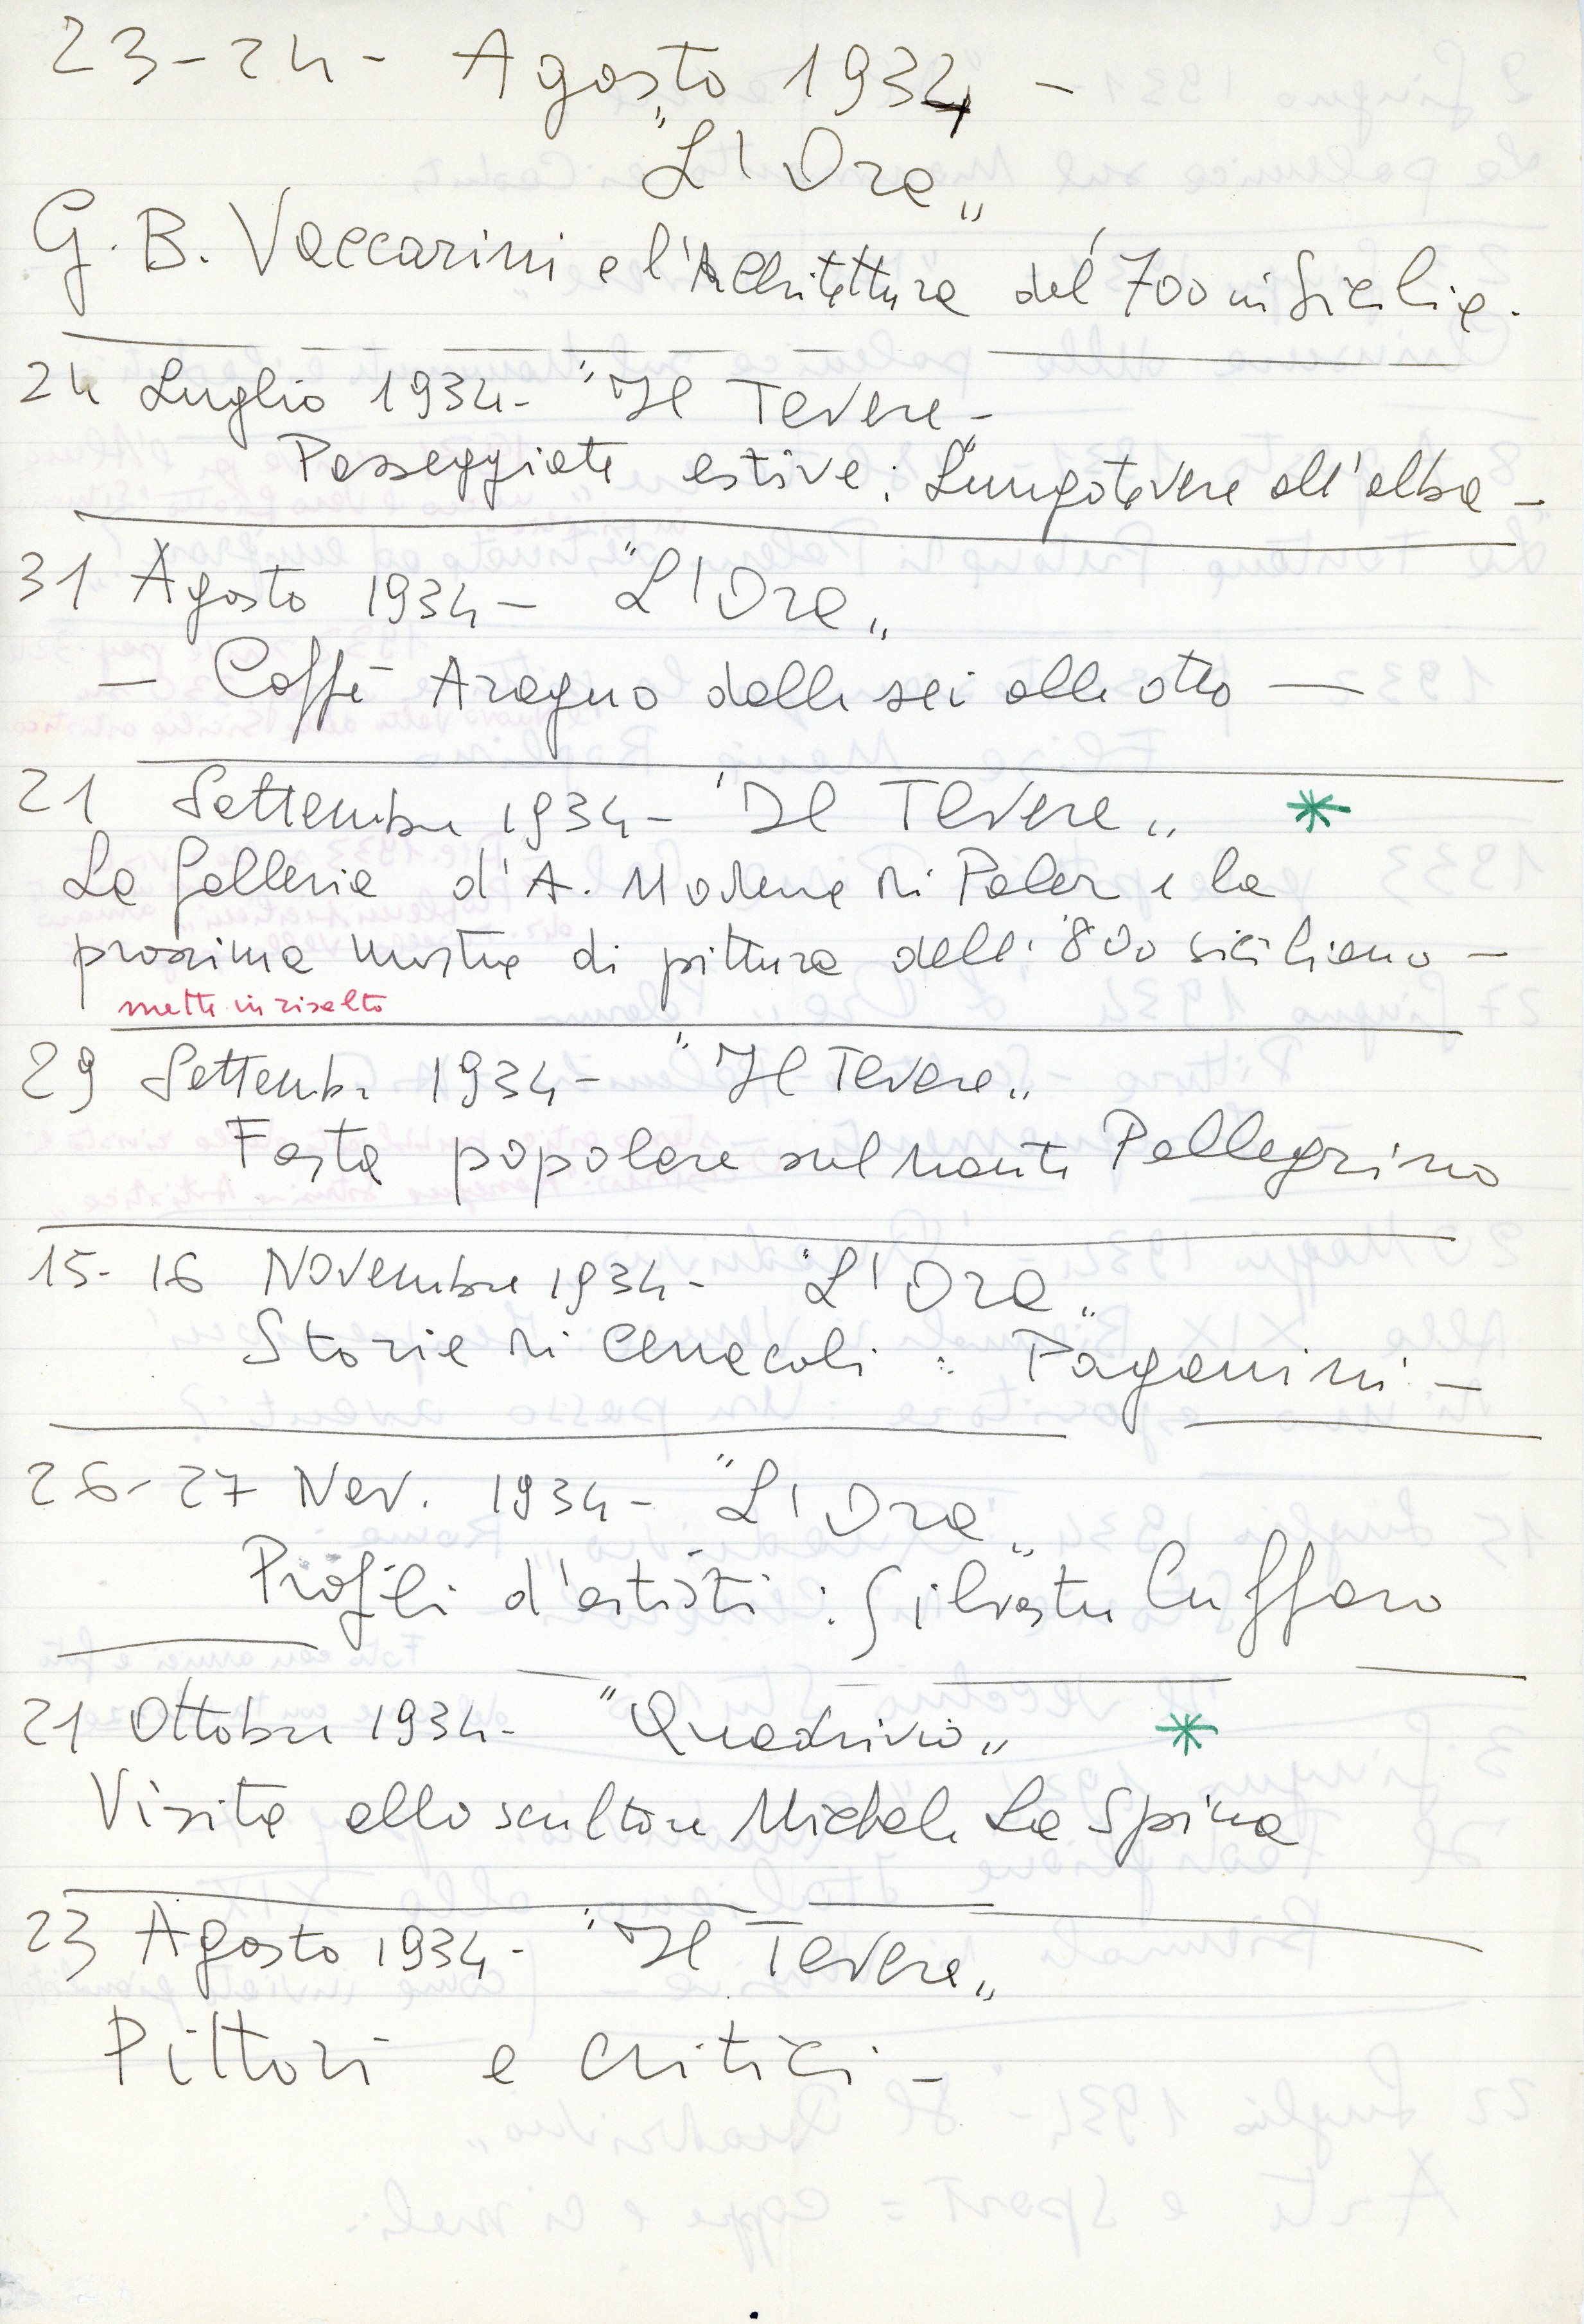 23-24- Agosto 1934 -
"L'Ora"
G. B. Vaccarini e l'Architettura del '700 in Sicilia.
24 Luglio 1934- "Il Tevere"-
Passeggiate estive: Lungotevere all'alba -
31 Agosto 1934 - "L'Ora"
- Caffè Aragno dalle sei alle otto -
21 Settembre 1934- "Il Tevere" *
La Galleria d'A. Moderna di Paler e la
prossima mostra di pittura dell' '800 siciliano -
mette in risalto
29 Settembre 1934- "Il Tevere"
Festa popolare sul monte Pellegrino
15-16 Novembre 1934- "L'Ora"
Storie di Cenacoli: Paganini -
26-27 Nov. 1934- "L'Ora"
Profili d'artisti: Silvestre Cuffaro
21 Ottobre 1934- "Quadrivio" *
Visita allo scultore Michele La Spina
23 Agosto 1934- "Il Tevere"
Pittori e critici -